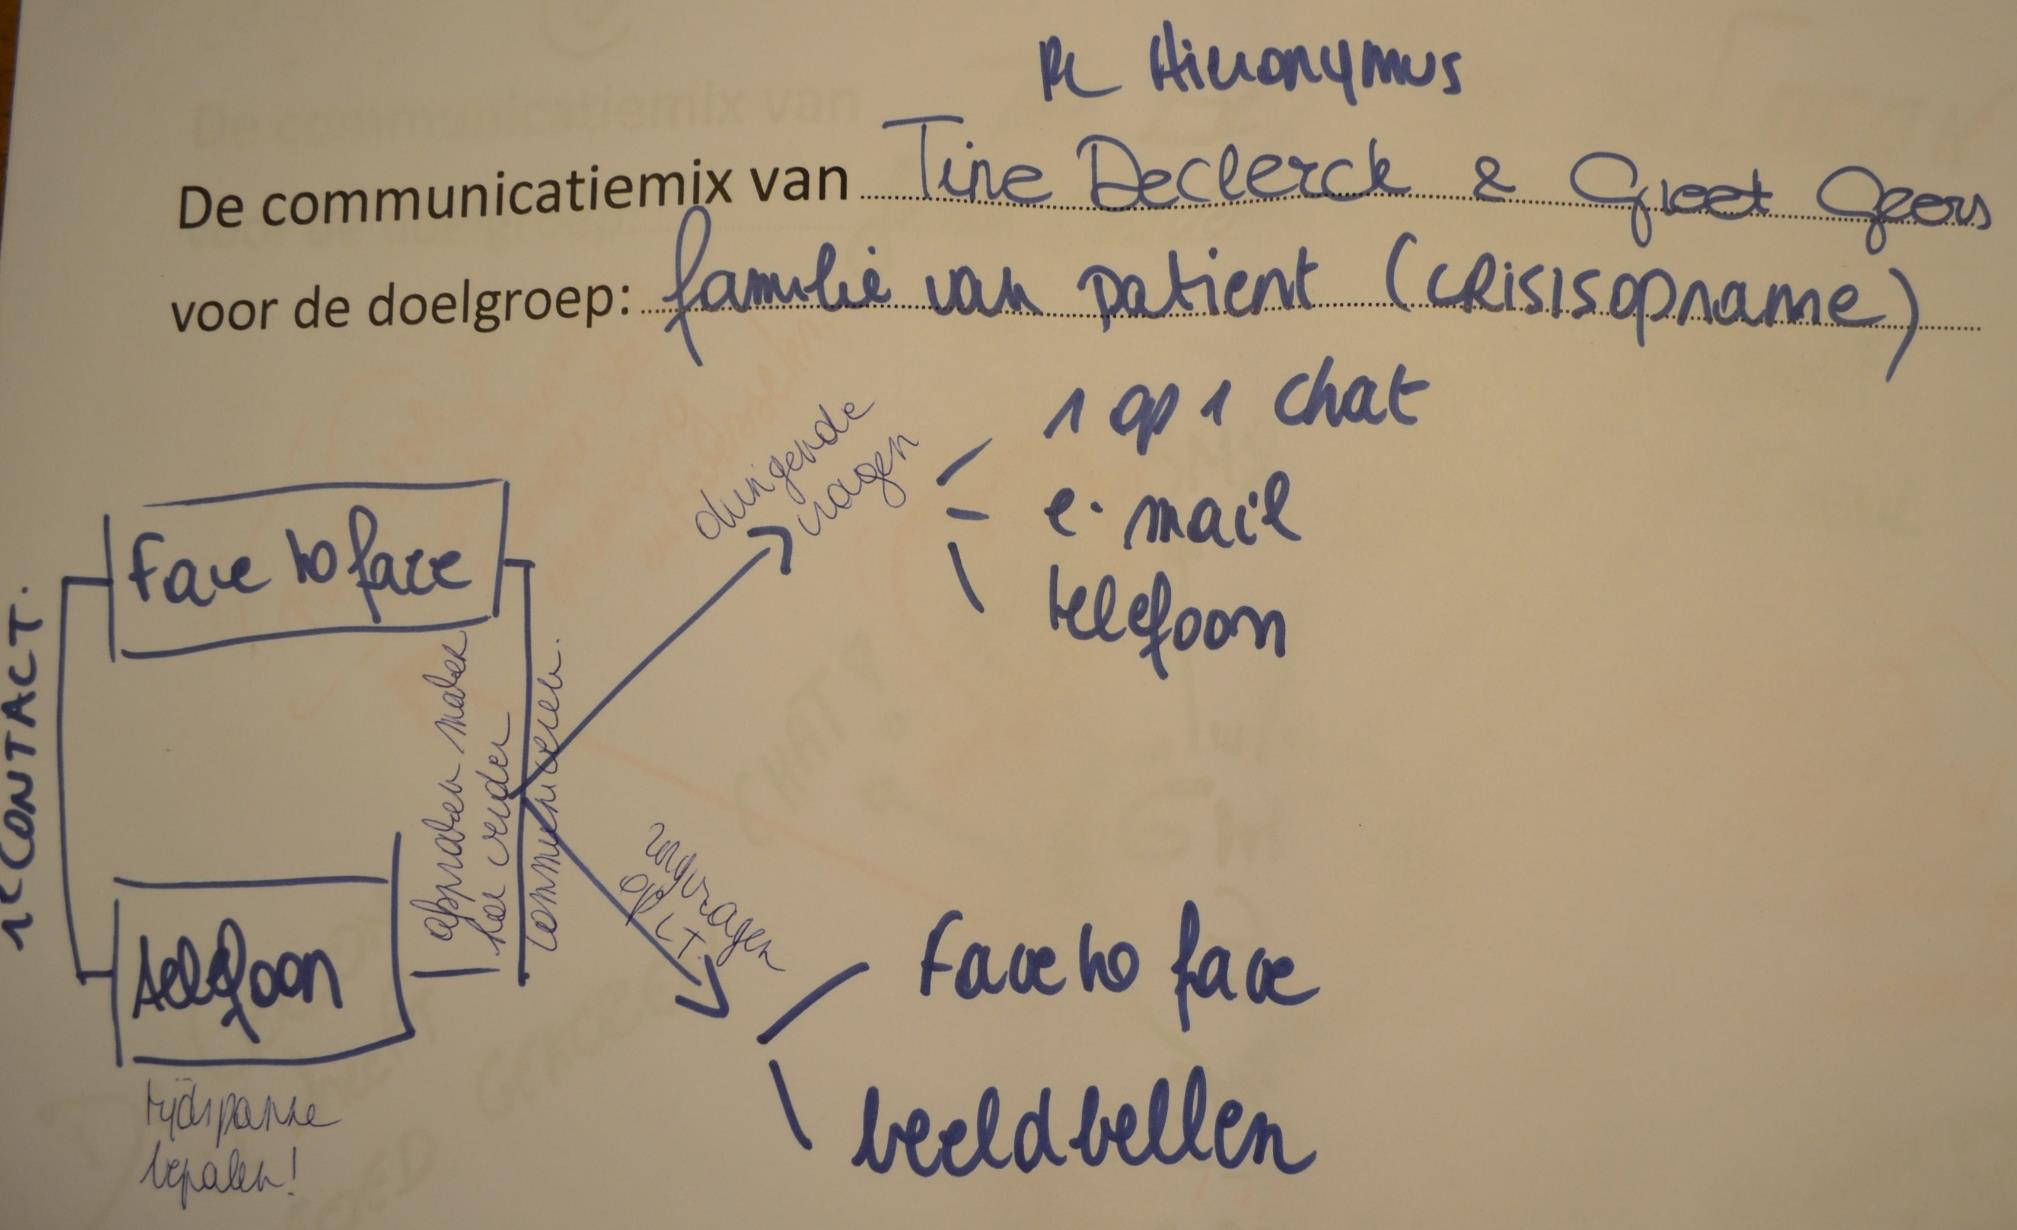 PC Hieronymus
De communicatiemix van Tine Declerck & Greet Geers
voor de doelgroep: familie van patient (CRISISopname)
1 op 1 chat
dringende
vragen
e-mail
telefoon
1e CONTACT.
Face to face
afspraken maken
hoe verder
communiceren.
zorgvragen
op LT.
Telefoon
Face to face
beeldbellen
tijdspanne
bepalen!